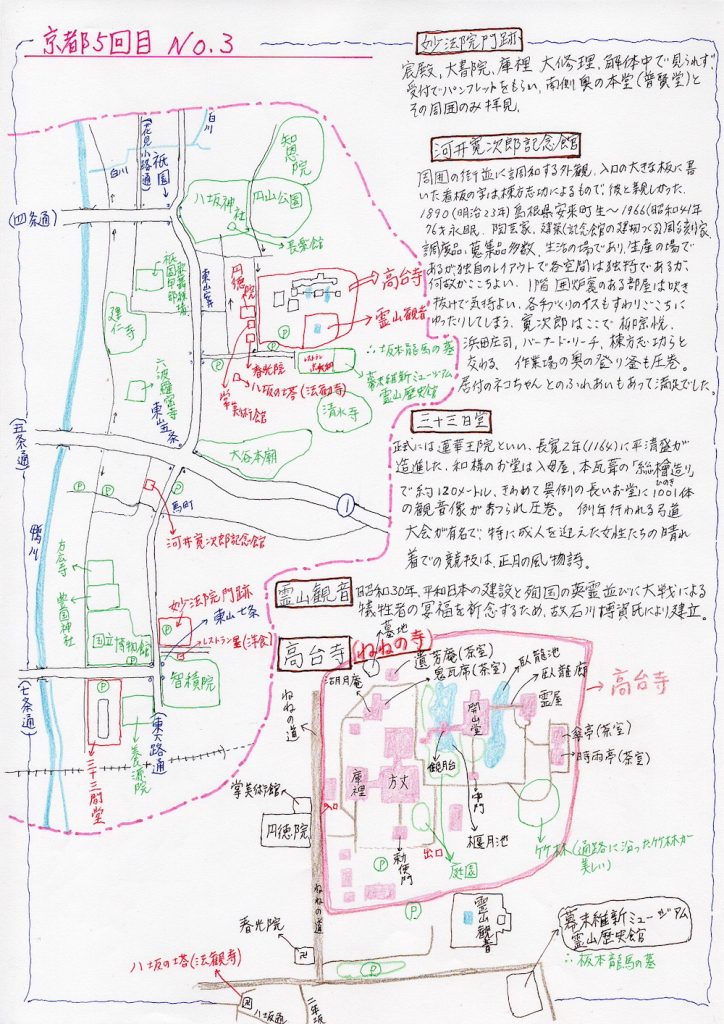 京都5回目 No.3
妙法院門跡
宸殿,大書院,庫裡 大修理,解体中で見られず,
受付でパンフレットをもらい,南側奥の本堂(普賢堂)と
その周囲のみ拝見.
河井寛次郎記念館
周囲の街並に調和する外観.入口の大きな板に書
いた看板の字は棟方志功によるもので,彼と親しかった.
1890(明治23年)島根県安来町生~1966(昭和41年
76才永眠. 陶芸家,建築(記念館の建物つくる)彫刻家
調度品,蒐集品多数,生活の場であり,生産の場で
あるが独自のレイアウトで各空間は独特であるが,
何故かここちよい. 1階 囲炉裏のある部屋は吹き
抜けで気持よい.各手づくりのイスもすわりごこちに
ゆったりしてしまう. 寛次郎はここで柳宗悦,
浜田庄司,バーナード・リーチ, 棟方志功らと
交わる. 作業場の奥の登り釜も圧巻.
居付のネコちゃんとのふれあいもあって満足でした.
三十三間堂
正式には蓮華王院といい,長寛2年(1164)に平清盛が
造進した.和様のお堂は入母屋,本瓦葺の「総檜造り」
ひのき
で約120メートル.きわめて異例の長いお堂に1001体
の観音像がまつられ圧巻. 例年行われる弓道
大会が有名で,特に成人を迎えた女性たちの晴れ
着での競技は,正月の風物詩.
霊山観音
昭和30年,平和日本の建設と殉国の英霊並びに大戦による
犠牲者の冥福を祈念するため,故石川博資氏により建立.
高台寺(ねねの寺)
白川
(花見小路通)
祇園
白川
知恩院
八坂神社
円山公園
長楽館
(四条通)
東山安井
祇園甲部歌舞練場
建仁寺
円徳院
高台寺
霊山観音
P
P
坂本龍馬の墓
幕末維新ミュージアム
霊山歴史館
春光院
八坂の塔(法観寺)
掌美術館
清水寺
六波羅蜜寺
東山五条
大谷本廟
(五条通)
P
P
P
馬町
1
河井寛次郎記念館
鴨川
方広寺
豊国神社
国立博物館
P
妙法院門跡
P
東山七条
レストラン里(洋食)
智積院
(七条通)
三十三間堂
養源院
(東大路通)
墓地
遺芳庵(茶室)
鬼瓦席(茶室)
湖月庵
臥龍池
臥龍廊
霊屋
高台寺
開山堂
傘亭(茶室)
時雨亭(茶室)
ねねの道
庫裡
方丈
観月台
中門
偃月池
掌美術館
円徳院
入口
勅使門
出口
庭園
竹林(通路に沿った竹林が
美しい)
P
P
ねねの道
霊山観音
春光院
卍
幕末維新ミュージアム
霊山歴史館
坂本龍馬の墓
八坂の塔(法観寺)
卍
P
八坂通
二年坂